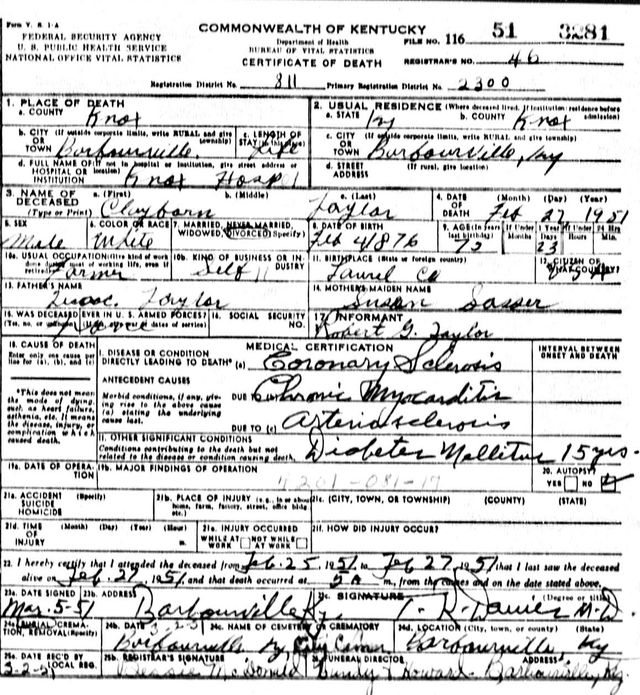 Form V. S. 1-A
FEDERAL SECURITY AGENCY
U. S. PUBLIC HEALTH SERVICE
NATIONAL OFFICE VITAL STATISTICS
COMMONWEALTH OF KENTUCKY
Department of Health
BUREAU OF VITAL STATISTICS
CERTIFICATE OF DEATH
FILE NO. 116 51 3281
REGISTRAR'S NO. 46
Registration District No. 811 Primary Registration District No. 2300
1. PLACE OF DEATH
a. COUNTY Knox
2. USUAL RESIDENCE (Where deceased lived. If institution: residence before admission)
a. STATE Ky b. COUNTY Knox
b. CITY (If outside corporate limits, write RURAL and give township) OR TOWN Barbourville,
c. LENGTH OF STAY (in this place) Life
c. CITY (If outside corporate limits, write RURAL and give township) OR TOWN Barbourville, Ky
d. FULL NAME OF (If not in hospital or institution, give street address or location) HOSPITAL OR INSTITUTION Knox Hospel
d. STREET ADDRESS (If rural, give location)
3. NAME OF DECEASED (Type or Print)
a. (First) Clayborn
b. (Middle)
c. (Last) Taylor
4. DATE OF DEATH (Month) (Day) (Year) Feb 27 1951
5. SEX Male
6. COLOR OR RACE White
7. MARRIED, NEVER MARRIED, WIDOWED, DIVORCED (Specify)
8. DATE OF BIRTH Feb 4 1876
9. AGE (In years last birthday)
If Under 1 Year Months Days 23
If Under 24 Hrs Hours Min.
10a. USUAL OCCUPATION (Give kind of work done during most of working life, even if retired) Farmer
10b. KIND OF BUSINESS OR INDUSTRY Self
11. BIRTHPLACE (State or foreign country) Laurel Co
12. CITIZEN OF WHAT COUNTRY?
13. FATHER'S NAME Isaac Taylor
14. MOTHER'S MAIDEN NAME Susan Sasser
15. WAS DECEASED EVER IN U. S. ARMED FORCES?
16. SOCIAL SECURITY NO.
17. INFORMANT Robert G. Taylor
18. CAUSE OF DEATH
Enter only one cause per line for (a), (b), and (c)
MEDICAL CERTIFICATION
INTERVAL BETWEEN ONSET AND DEATH
I. DISEASE OR CONDITION DIRECTLY LEADING TO DEATH* (a) Coronary Sclerosis
*This does not mean the mode of dying, such as heart failure, asthenia, etc. It means the disease, injury, or complication which caused death.
ANTECEDENT CAUSES
Morbid conditions, if any, giving rise to the above cause (a) stating the underlying cause last.
DUE TO (b) Chronic Myocarditis
DUE TO (c) Arteriosclerosis
II. OTHER SIGNIFICANT CONDITIONS
Conditions contributing to the death but not related to the disease or condition causing death.
Diabetes Mellitus 15 yrs.
19a. DATE OF OPERATION
19b. MAJOR FINDINGS OF OPERATION
4201-081-17
20. AUTOPSY?
YES NO
21a. ACCIDENT SUICIDE HOMICIDE (Specify)
21b. PLACE OF INJURY (e.g., in or about home, farm, factory, street, office bldg., etc.)
21c. (CITY, TOWN, OR TOWNSHIP) (COUNTY) (STATE)
21d. TIME OF INJURY (Month) (Day) (Year) (Hour) m.
21e. INJURY OCCURRED
WHILE AT WORK NOT WHILE AT WORK
21f. HOW DID INJURY OCCUR?
22. I hereby certify that I attended the deceased from Feb. 25, 1951, to Feb 27, 1951 that I last saw the deceased
alive on Feb. 27, 1951 and that death occurred at m., from the causes and on the date stated above.
23a. DATE SIGNED Mar. 5-51
23b. ADDRESS Barbourville Ky
23c. SIGNATURE (Degree or title) M.D.
24a. BURIAL, CREMATION, REMOVAL (Specify)
24b. DATE
24c. NAME OF CEMETERY OR CREMATORY
24d. LOCATION (City, town, or county) (State) Barbourville, Ky
25a. DATE REC'D BY LOCAL REG. 3-2-51
25b. REGISTRAR'S SIGNATURE Bessie McDonald
26. FUNERAL DIRECTOR ADDRESS Howard Barbourville, Ky.